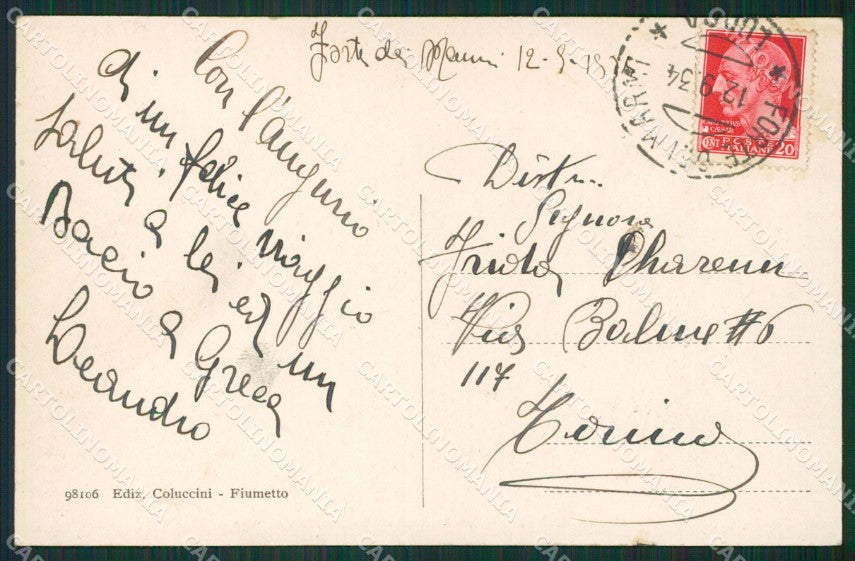 Forte dei Marmi 12-9-193
Con l'augurio
di un felice viaggio
saluti a lei ed un
Bacio a Greca
Leandro
LUCCA
* FORTE DEI MARMI *
12.9.34
POSTE
ITALIANE
CENT 20
Dist.
Signora
Frida
Via Balmetto
117
Torino
98106 Ediz. Coluccini - Fiumetto
CARTOLINOMANIA